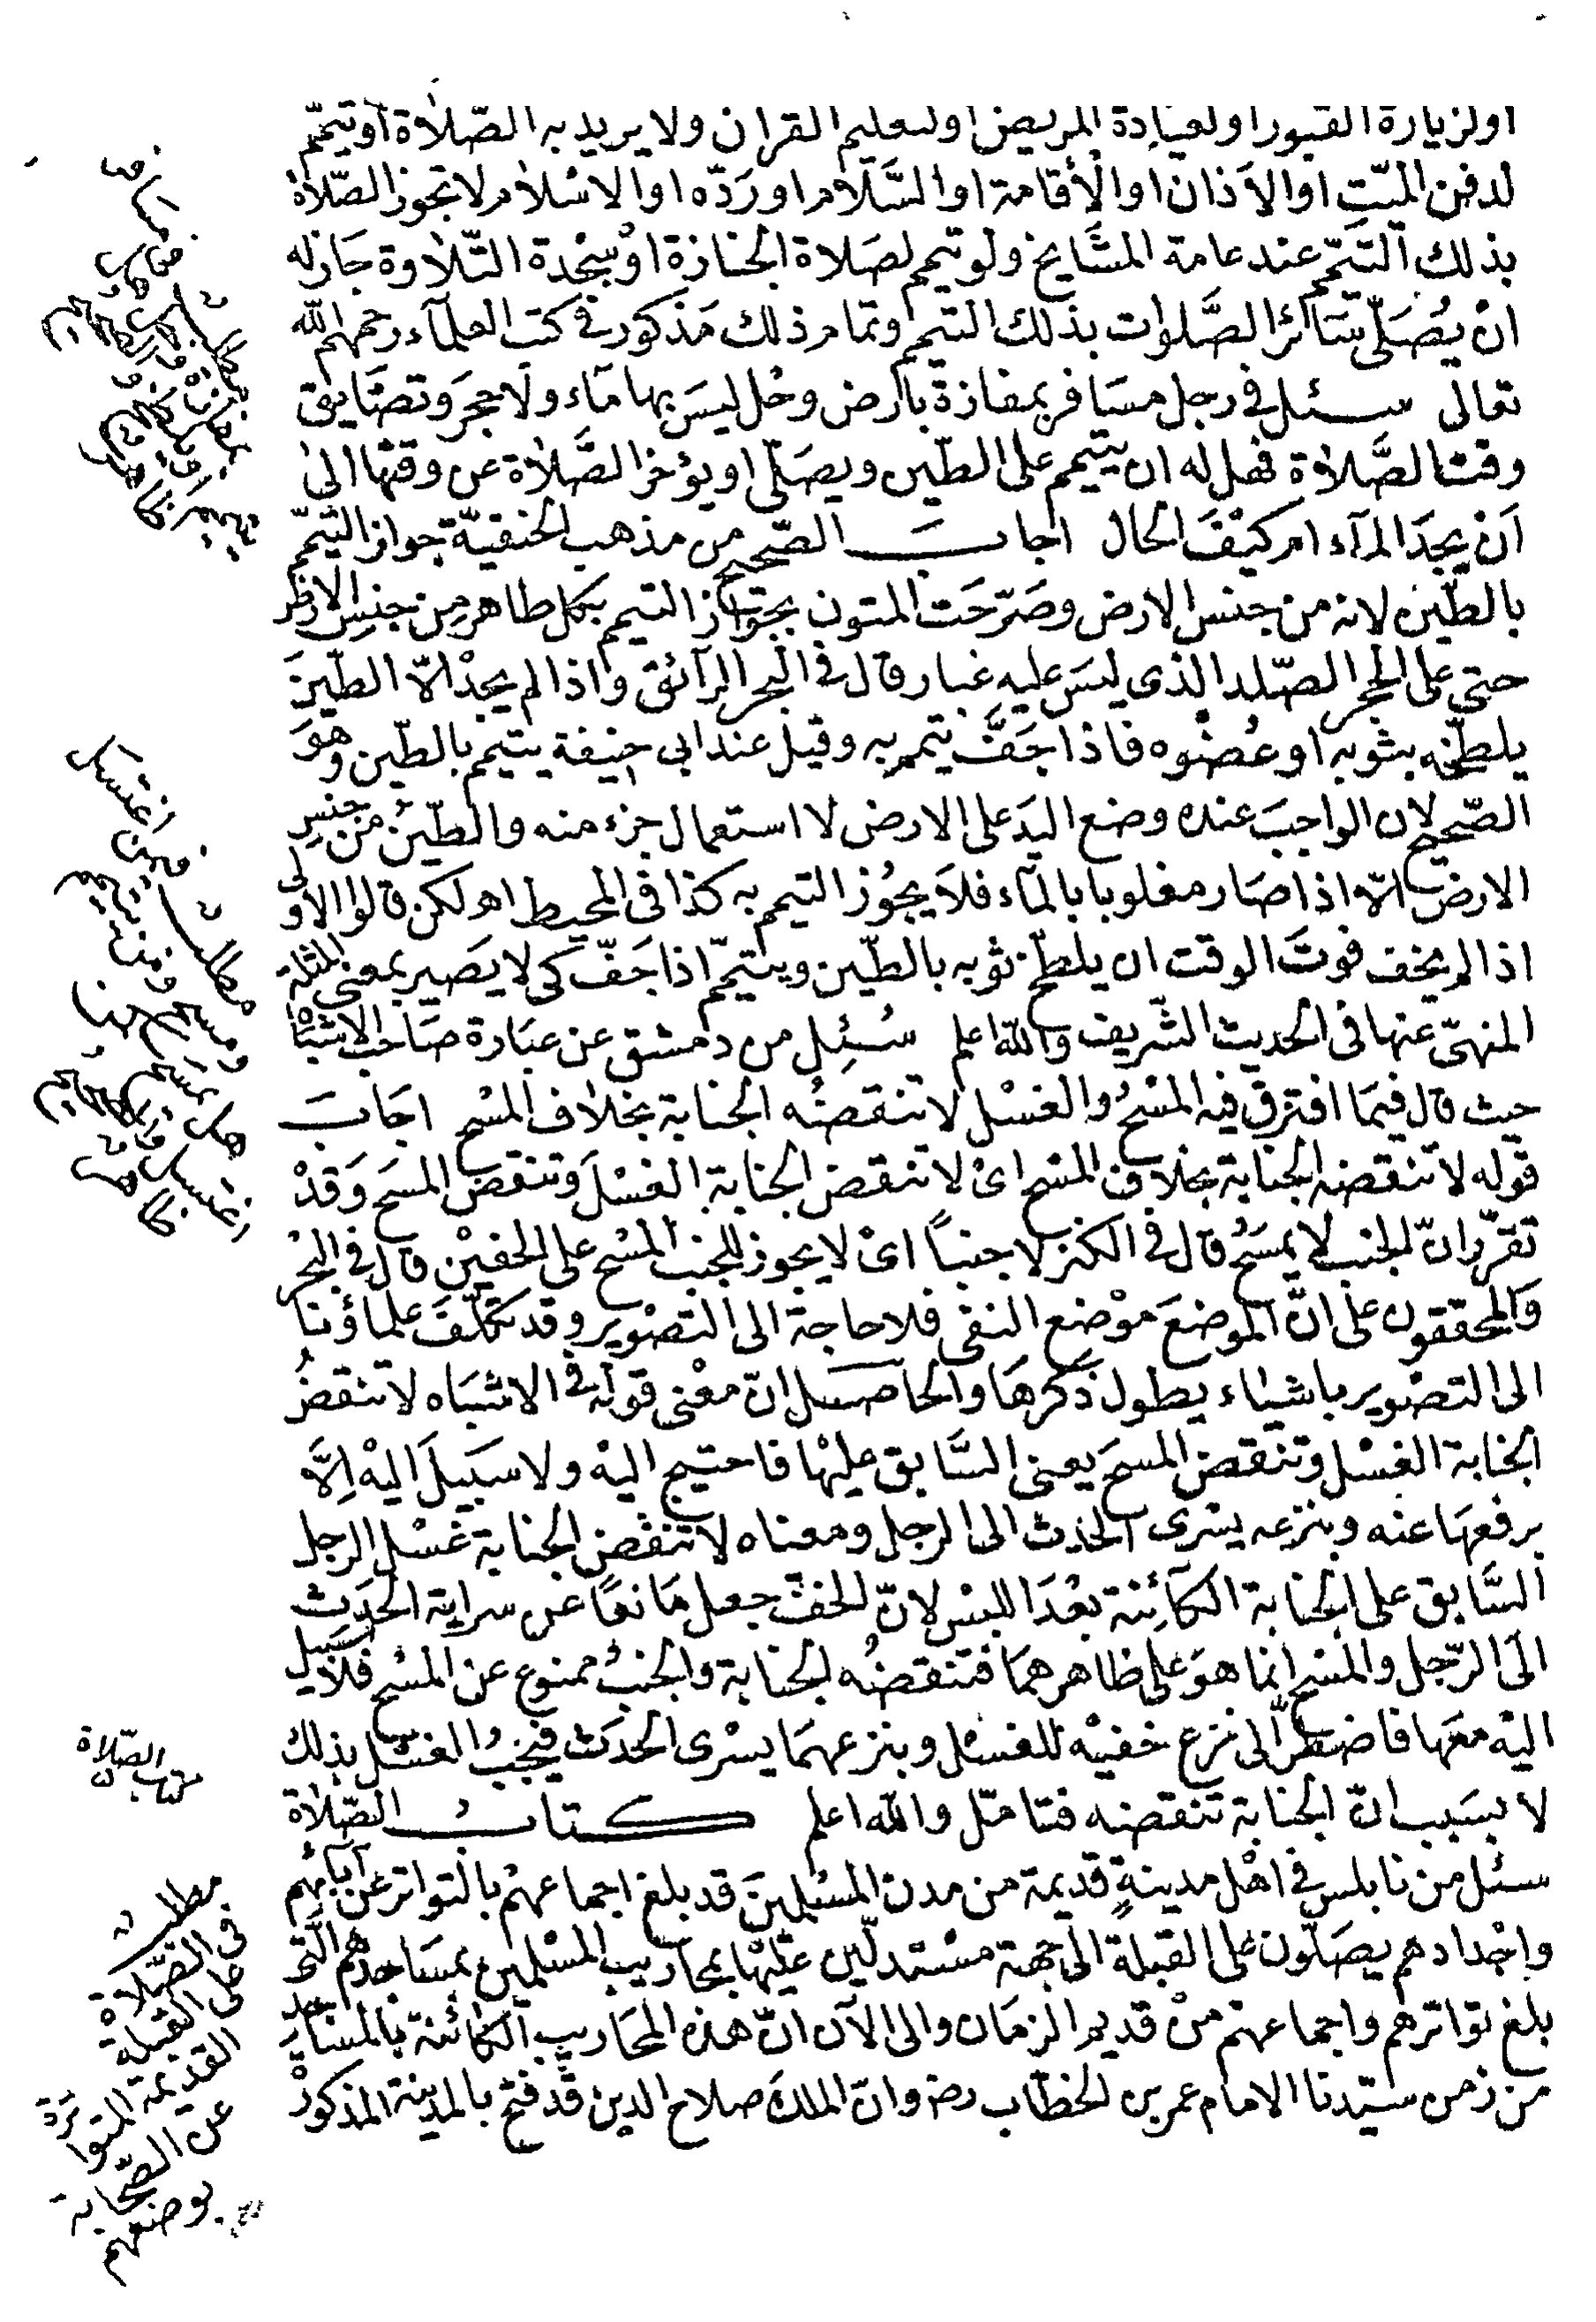 اولزيارة القبور اولعيادة المريض اولتعليم القرآن ولا يريد به الصّلاة اوتيمّم
لدفن الميّت اوالاَذان اوالأقامة اوالسَّلام اورَدّه اوالاسْلام لاتجوز الصّلاة
بذلك التيمّم عند عامة المشَايخ ولوتيمم لصَلاة الجنازة اوْسجْدة التّلاوة جَازله
انْ يُصَلّى سَائر الصَّلوات بذلك التيمم وتمام ذلك مَذكور فى كتب العلمآء رحمهم الله
تعالى سئل فى رجل مسَافر بمفازة بارض وحْل ليسَ بها مَاء ولاحجرَ وتضَايق
وقت الصَّلاة فهل له ان يتيمم على الطّين ويصَلّى اويؤخر الصَّلاة عن وقتها الىٰ
اَنْ يجدَ المآء ام كيْفَ الحال اجابَ الصّحيح من مذهب الحنفيّة جواز التيمّم
بالطّين لانه من جنس الارض وصَرّحَت المتون بجوَاز التيمم بكل طاهر مِن جنسِ الارض
حتى على الحجر الصّلد الذى ليسَ عليه غبار قال فى البحر الرآئق واذا لم يجدْ الاّ الطّينَ
يلطّخه بثوبه اوعُضْوه فاذا جَفَّ يتمم به وقيل عند ابى حنيفة يتيمم بالطّين وهوَ
الصّحيح لان الواجبَ عنده وضع اليدَ على الارض لا استعمال جزء منه والطّينُ من جنسِ
الارض الاّ اذا صَار مغلوبا بالمآء فلاَ يجُوز التيمم به كذا فى المحيط اه لكن قالوا الاولى
اذا لم يخف فوتَ الوقت ان يلطّخ ثوبه بالطّين ويتيمّم اذا جَفّ كى لا يصَير بمعنى المثلة
المنهىّ عنها فى الحديث الشّريف والله اعلم سُئِل من دمشق عن عبَارة صَاحب الاشْبَاه
حيث قال فيمَا افترق فيه المسْحُ والغسْل لاتنقضُه الجنابة بخلاف المسْح اجَابَ
قوله لاتنقضه الجنابة بخلاف المسْح اىْ لاتنقض الجنابة الغسْلَ وتنقض المسَح وَقدْ
تقرّر انّ الجنب لا يمسَحُ قال فى الكنز لاجنباً اىْ لايجوز للجنب المسْح على الخفيْن قال فى البحْر
وَالمحققون على انّ الموضعَ موْضع النفى فلاحاجة الى التصْوير وقد تكلّفَ علماؤنا
الى التصْوير باشياء يطول ذكرهَا والحاصل انّ معْنى قوله فى الاشبَاه لاتنقضُ
الجنابة الغسْل وتنقض المسحَ يعنى السَّابق عليْها فاحتيج اليْه ولاسَبيلَ اليْه اِلَّا
برفعهَا عنه وبنزعه يسْرى الحَدث الى الرجل ومعناه لاتنقض الجنابة غسْل الرجل
السَّابق على الجنابة الكآئِنة بعْدَ اللبس لانّ الخفّ جعل مَانعًا عن سراية الحَدَث
الى الرّجل والمسْح انما هوَ على ظاهرهمَا فتنقضُه الجنابة والجنبُ ممنوع عن المسْح فلاسبيل
اليْه معَها فاضطرّ الى نزع خفيْه للغسْل وبنزعهمَا يسْرى الحَدَث فيَجبُ الغسْل بذلك
لا بسَبب انّ الجنابة تنقضه فتامّل والله اعلم كتابُ الصّلاة
سئل من نابلس فى اهْل مدينةٍ قديمة من مدن المسْلمينَ قد بلغ اجماعهمْ بالتواتر عن آبآئهم
واجْدادهم يصَلّون على القبلة الى جهة مسْتدلّين عليْها بمحاريب المسْلمين بمسَاجدهم الّتى
بلغ تواترهم واجماعهم منْ قديم الزمَان والى الآن انّ هذه المحَاريب الكائنة بالمسَاجد
من زمن سيّدنا الامام عمر بن الخطّاب رضه وانّ الملك صلاح الدين قَدْ فتح بالمدينة المذكورة
كتاب الصّلاة
مطلب
فى الصّلاة
على القبلة
القديمة المتواترة
عن الصّحابة
بوضعهم